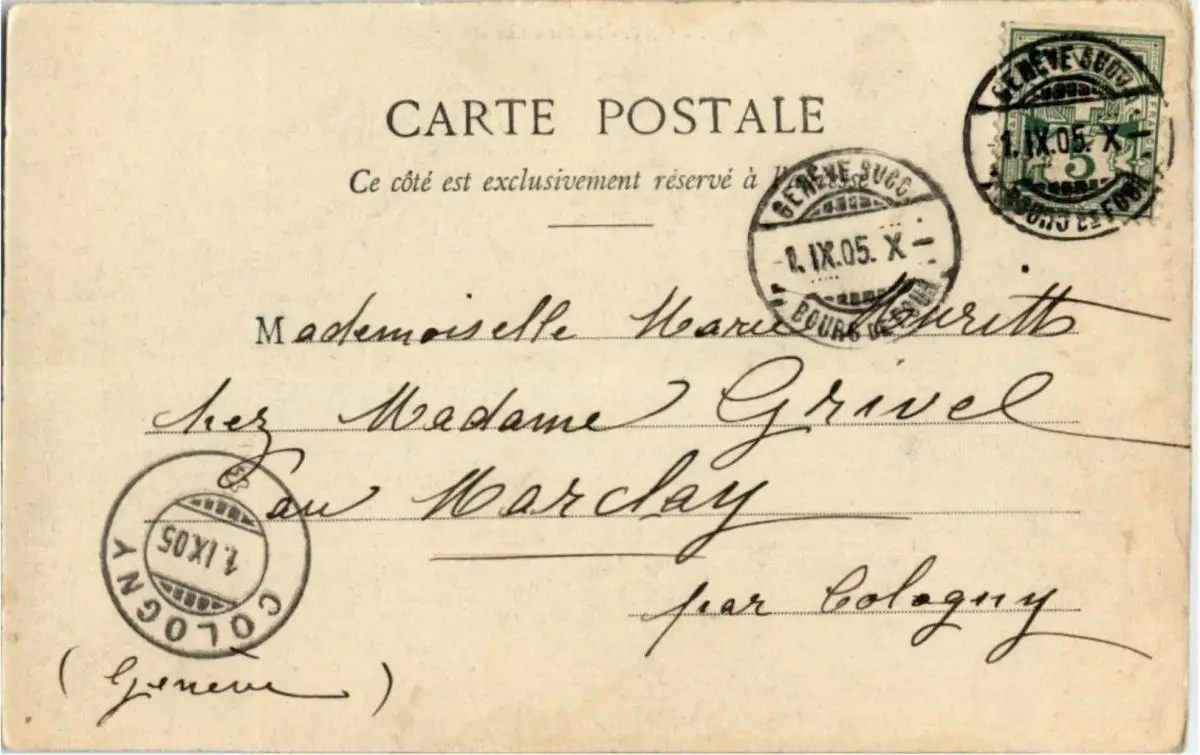 CARTE POSTALE
Ce côté est exclusivement réservé à l'adresse
GENÈVE SUCC.
1.IX.05. X
BOURG DE FOUR
5
GENÈVE SUCC.
1.IX.05. X
BOURG DE FOUR
Mademoiselle Marie
chez Madame Grivel
au Marclay
par Cologny
(Genève)
COLOGNY
1.IX.05